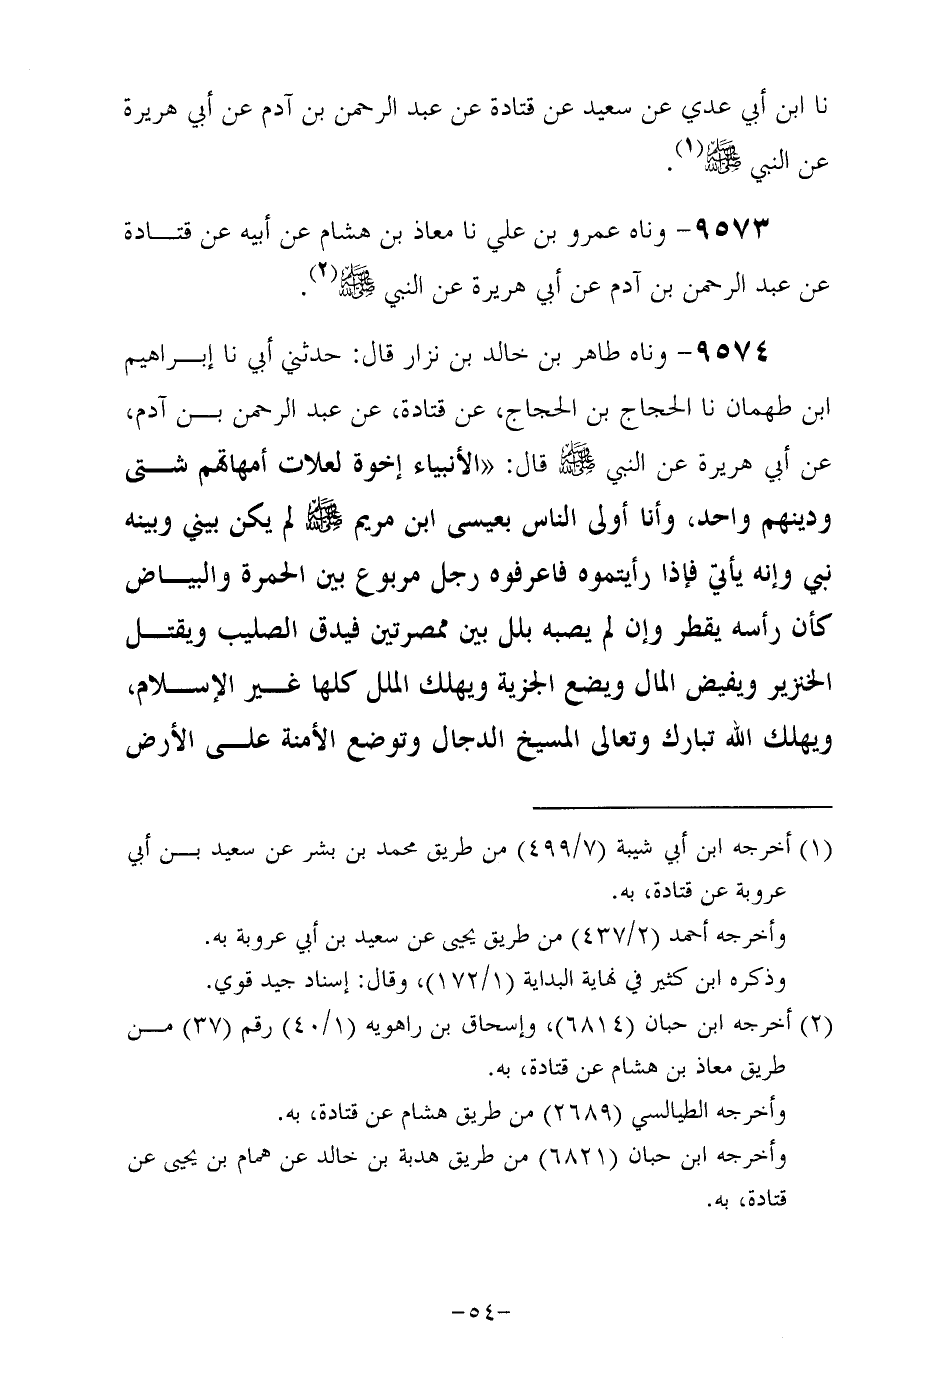 نا ابن أبي عدي عن سعيد عن قتادة عن عبد الرحمن بن آدم عن أبي هريرة
عن النبي ﷺ(١).
٩٥٧٣- وناه عمرو بن علي نا معاذ بن هشام عن أبيه عن قتـــادة
عن عبد الرحمن بن آدم عن أبي هريرة عن النبي ﷺ(٢).
٩٥٧٤- وناه طاهر بن خالد بن نزار قال: حدثني أبي نا إبـــراهيم
ابن طهمان نا الحجاج بن الحجاج، عن قتادة، عن عبد الرحمن بـــن آدم،
عن أبي هريرة عن النبي ﷺ قال: «الأنبياء إخوة لعلات أمهاتهم شـــتى
ودينهم واحد، وأنا أولى الناس بعيسى ابن مريم ﷺ لم يكن بيني وبينه
نبي وإنه يأتي فإذا رأيتموه فاعرفوه رجل مربوع بين الحمرة والبيـــاض
كأن رأسه يقطر وإن لم يصبه بلل بين ممصرتين فيدق الصليب ويقتـــل
الخنزير ويفيض المال ويضع الجزية ويهلك الملل كلها غـــير الإســـلام،
ويهلك الله تبارك وتعالى المسيخ الدجال وتوضع الأمنة علـــى الأرض
(١) أخرجه ابن أبي شيبة (٤٩٩/٧) من طريق محمد بن بشر عن سعيد بـــن أبي
عروبة عن قتادة، به.
وأخرجه أحمد (٤٣٧/٢) من طريق يحيى عن سعيد بن أبي عروبة به.
وذكره ابن كثير في نهاية البداية (١٧٢/١)، وقال: إسناد جيد قوي.
(٢) أخرجه ابن حبان (٦٨١٤)، وإسحاق بن راهويه (٤٠/١) رقم (٣٧) مـــن
طريق معاذ بن هشام عن قتادة، به.
وأخرجه الطيالسي (٢٦٨٩) من طريق هشام عن قتادة، به.
وأخرجه ابن حبان (٦٨٢١) من طريق هدبة بن خالد عن همام بن يحيى عن
قتادة، به.
-٥٤-